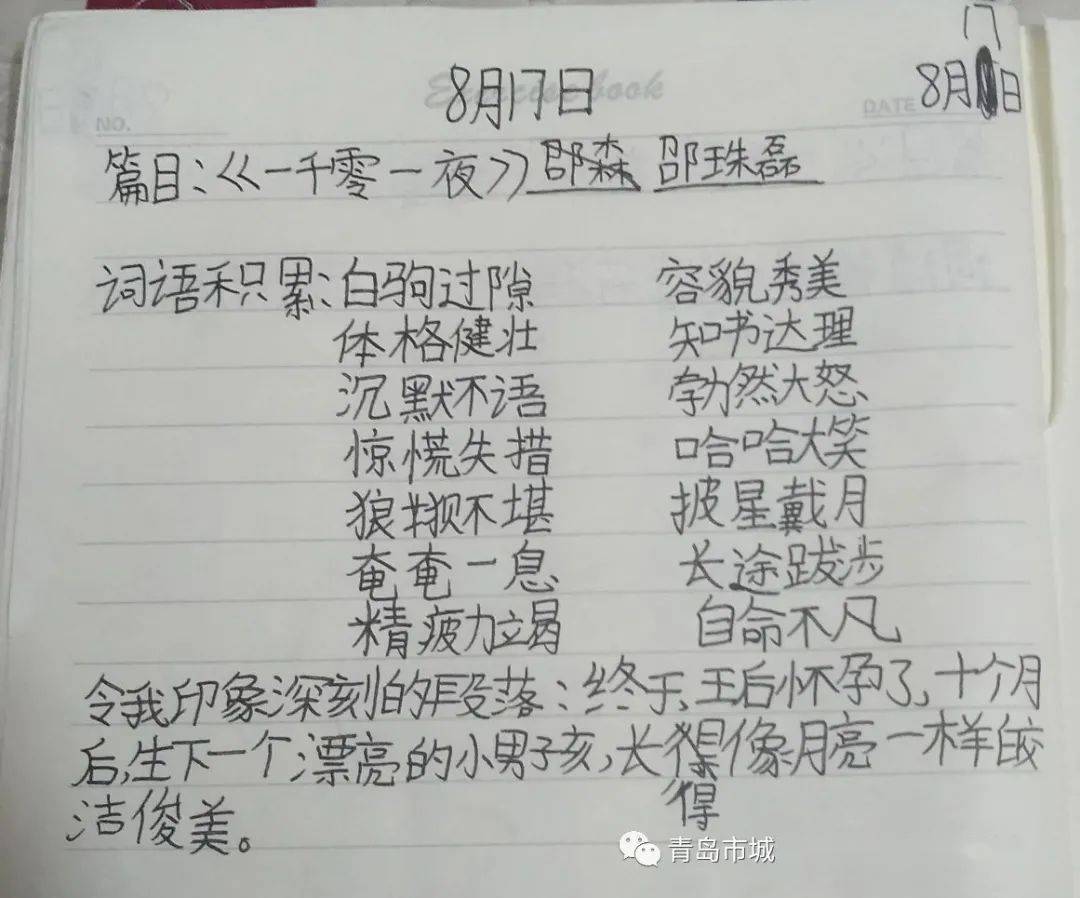 17
8月17日 8月日
Exercise book
NO. DATE
篇目:《一千零一夜》邵森 邵珠磊
词语积累:白驹过隙 容貌秀美
体格健壮 知书达理
沉默不语 勃然大怒
惊慌失措 哈哈大笑
狼狈不堪 披星戴月
奄奄一息 长途跋涉
精疲力竭 自命不凡
令我印象深刻的段落:终于,王后怀孕了,十个月
后,生下一个漂亮的小男孩,长得像月亮一样皎
得
洁俊美。
青岛市城